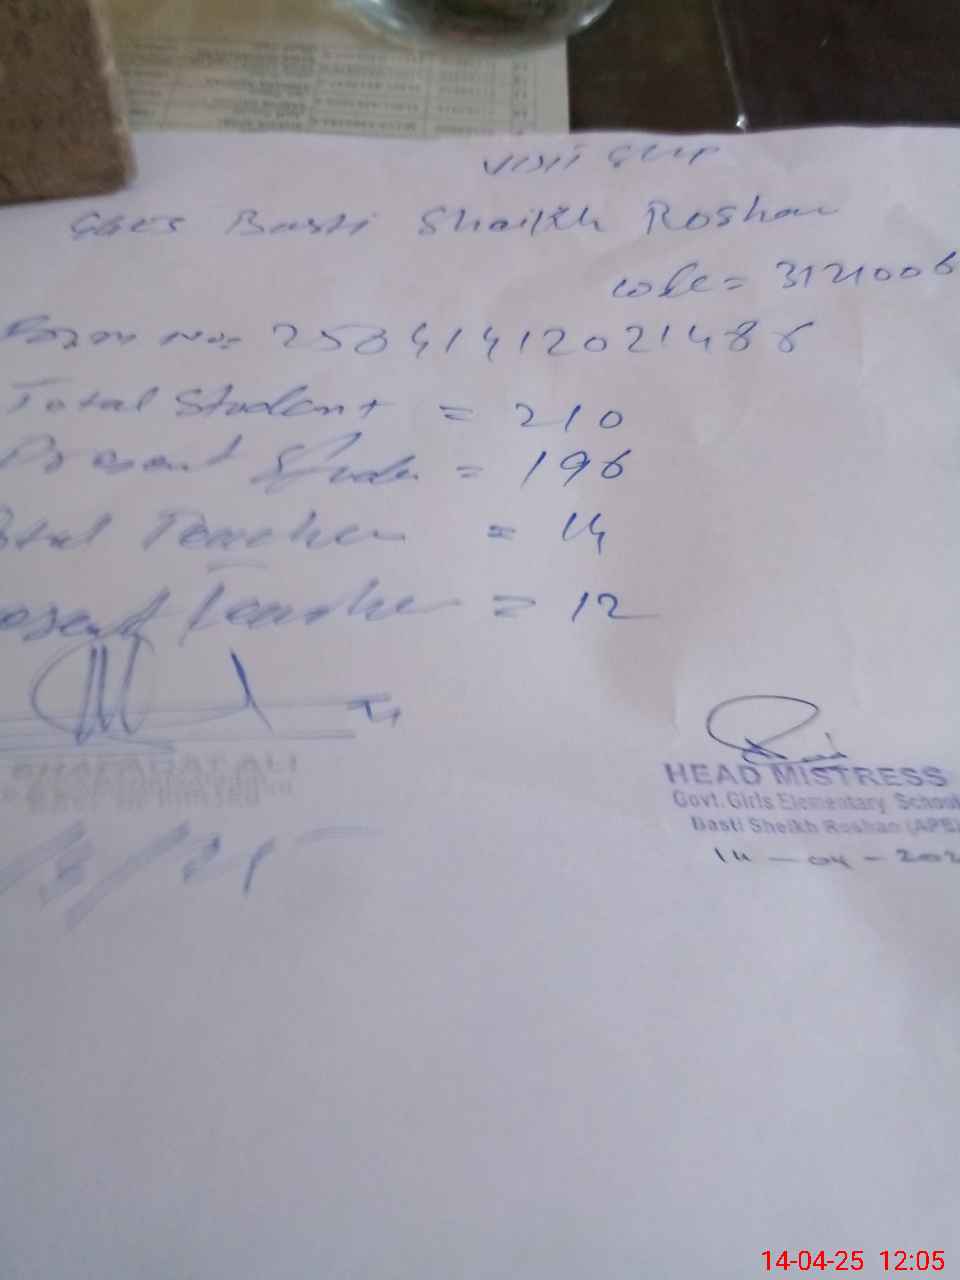 Visit Slip
GGES Basti Shaikh Roshan
code = 3121006
Form No = 25041412021486
Total Student = 210
Present Stude = 196
otal Teacher = 14
esent Teacher = 12
SHAFAQAT ALI
HEAD MISTRESS
Govt. Girls Elementary School
Basti Sheikh Roshan (APE)
14-04-202
14-04-25 12:05